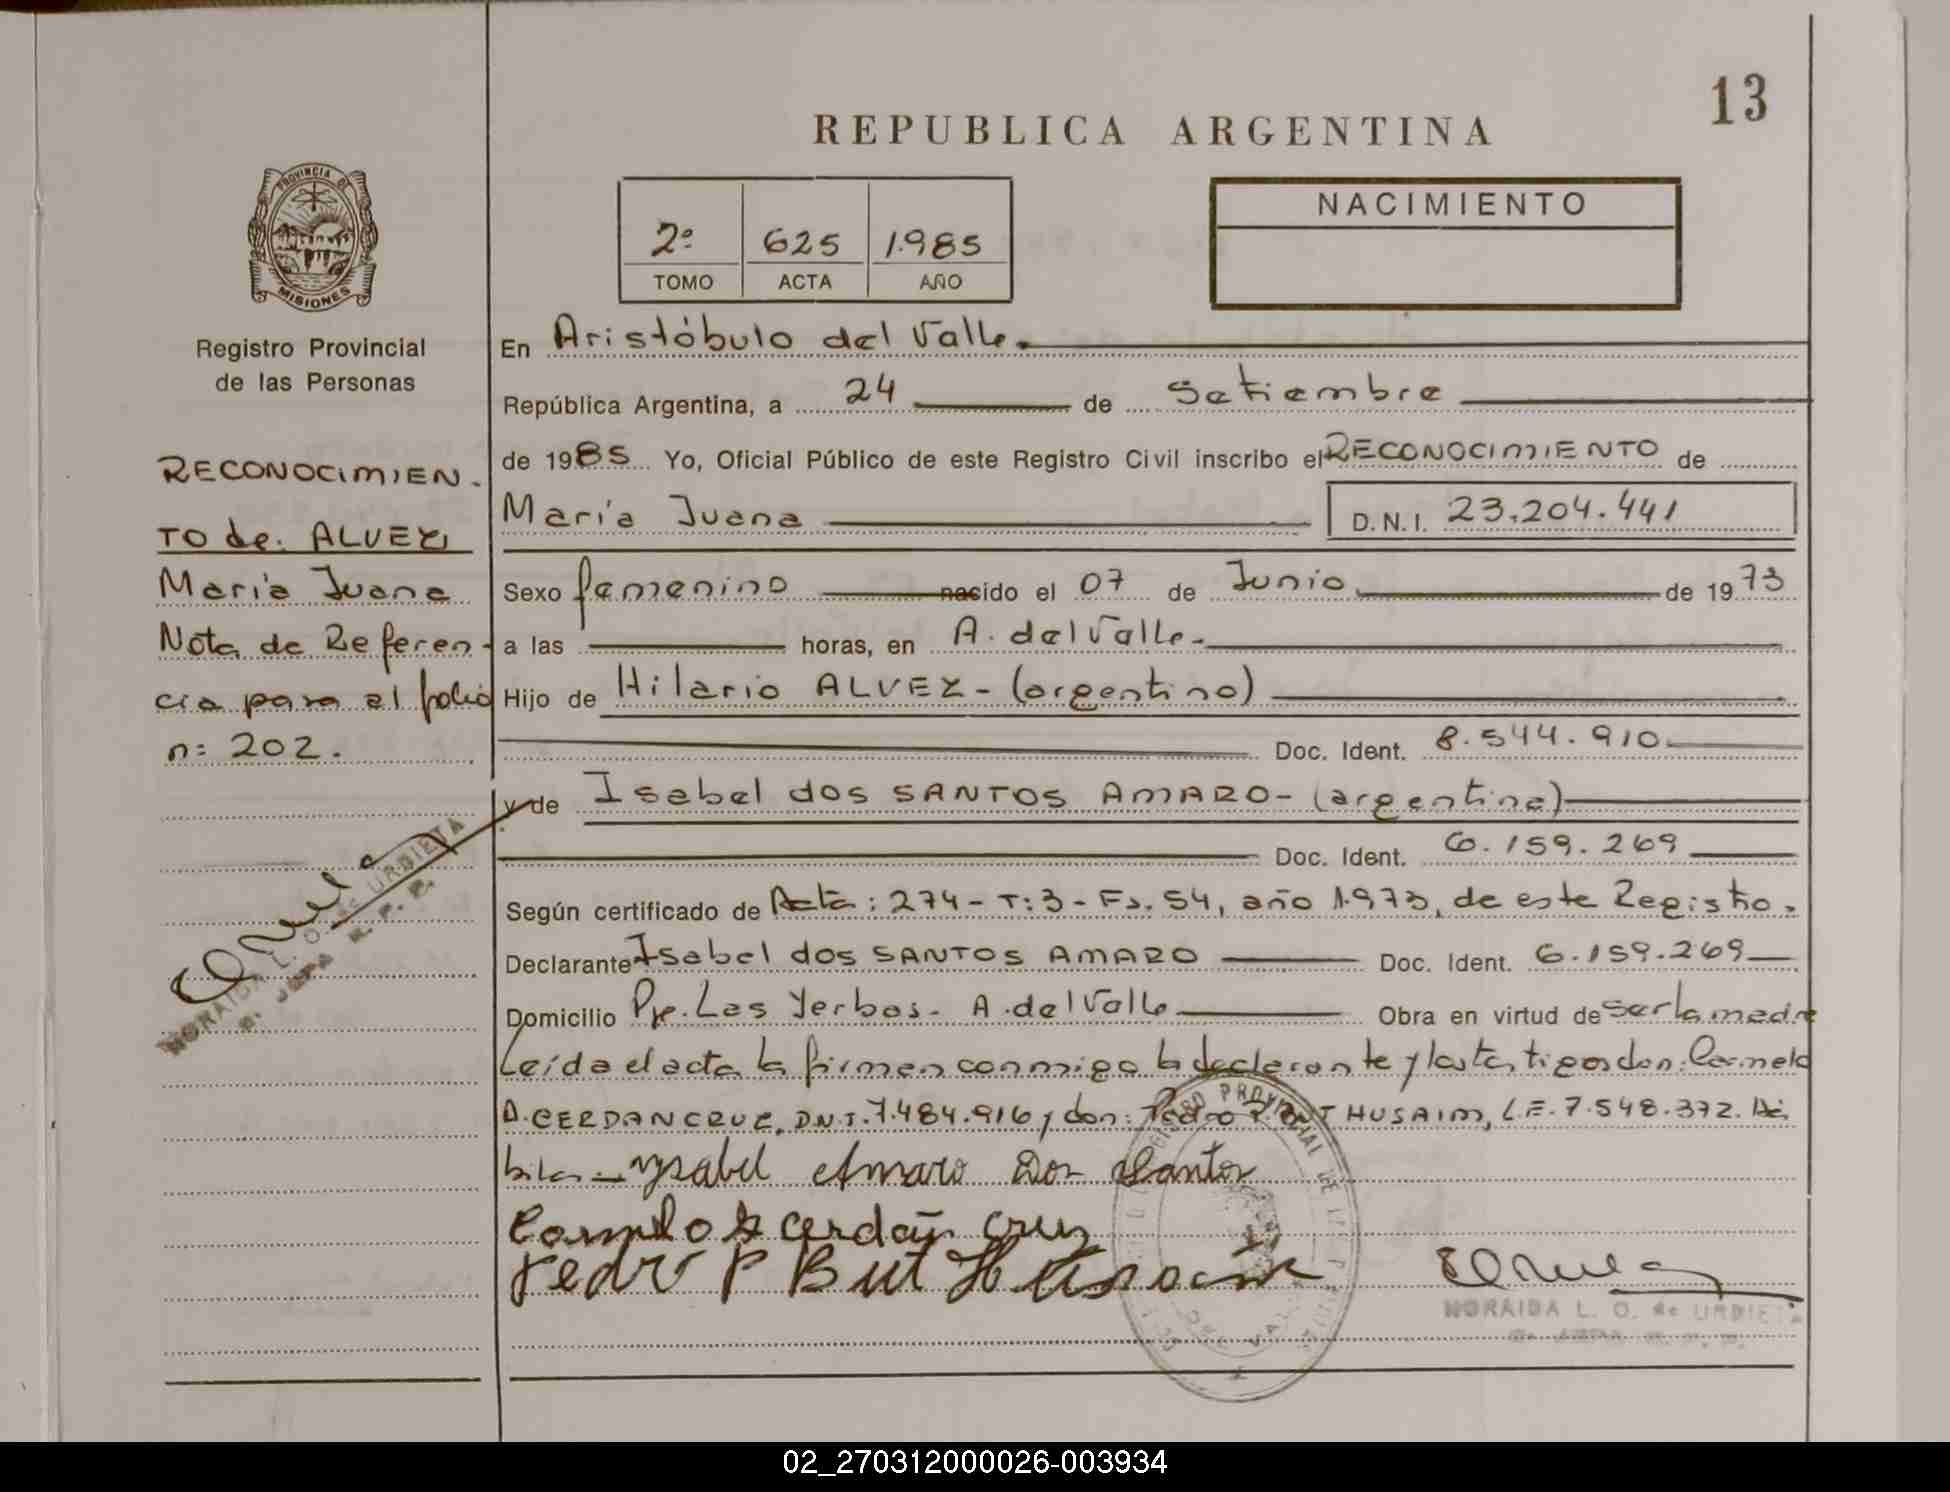 13
REPUBLICA ARGENTINA
PROVINCIA DE
MISIONES
2º 625 1.985
TOMO ACTA AÑO
NACIMIENTO
Registro Provincial
de las Personas
RECONOCIMIEN-
TO de: ALVEZ
María Juana
Nota de Referen-
cia para el folio
nº 202.
NORAIDA L. O. de URDIETA
En Aristóbulo del Valle.
República Argentina, a 24 de Setiembre
de 1985 Yo, Oficial Público de este Registro Civil inscribo el RECONOCIMIENTO de
María Juana D.N.I. 23.204.441
Sexo femenino nacido el 07 de Junio de 1973
a las horas, en A. del Valle.
Hijo de Hilario ALVEZ - (argentino)
Doc. Ident. 8.544.910
y de Isabel dos SANTOS AMARO - (argentina)
Doc. Ident. 6.159.269
Según certificado de Acta: 274 - T: 3 - Fs. 54, año 1.973, de este Registro.
Declarante Isabel dos SANTOS AMARO Doc. Ident. 6.159.269
Domicilio Pje. Las Yerbas - A. del Valle Obra en virtud de ser la madre
Leída el acta la firman conmigo la declarante y los testigos don: Carmelo
D. CERDAN CRUZ, D.N.I. 7.484.916 y don: Pedro P. BUT HUSAIM, L.E. 7.548.372. Há-
biles - Ysabel Amaro Dos Santos
Carmelo D Cerdan Cruz
Pedro P But Husaim
NORAIDA L. O. de URDIETA
02_270312000026-003934